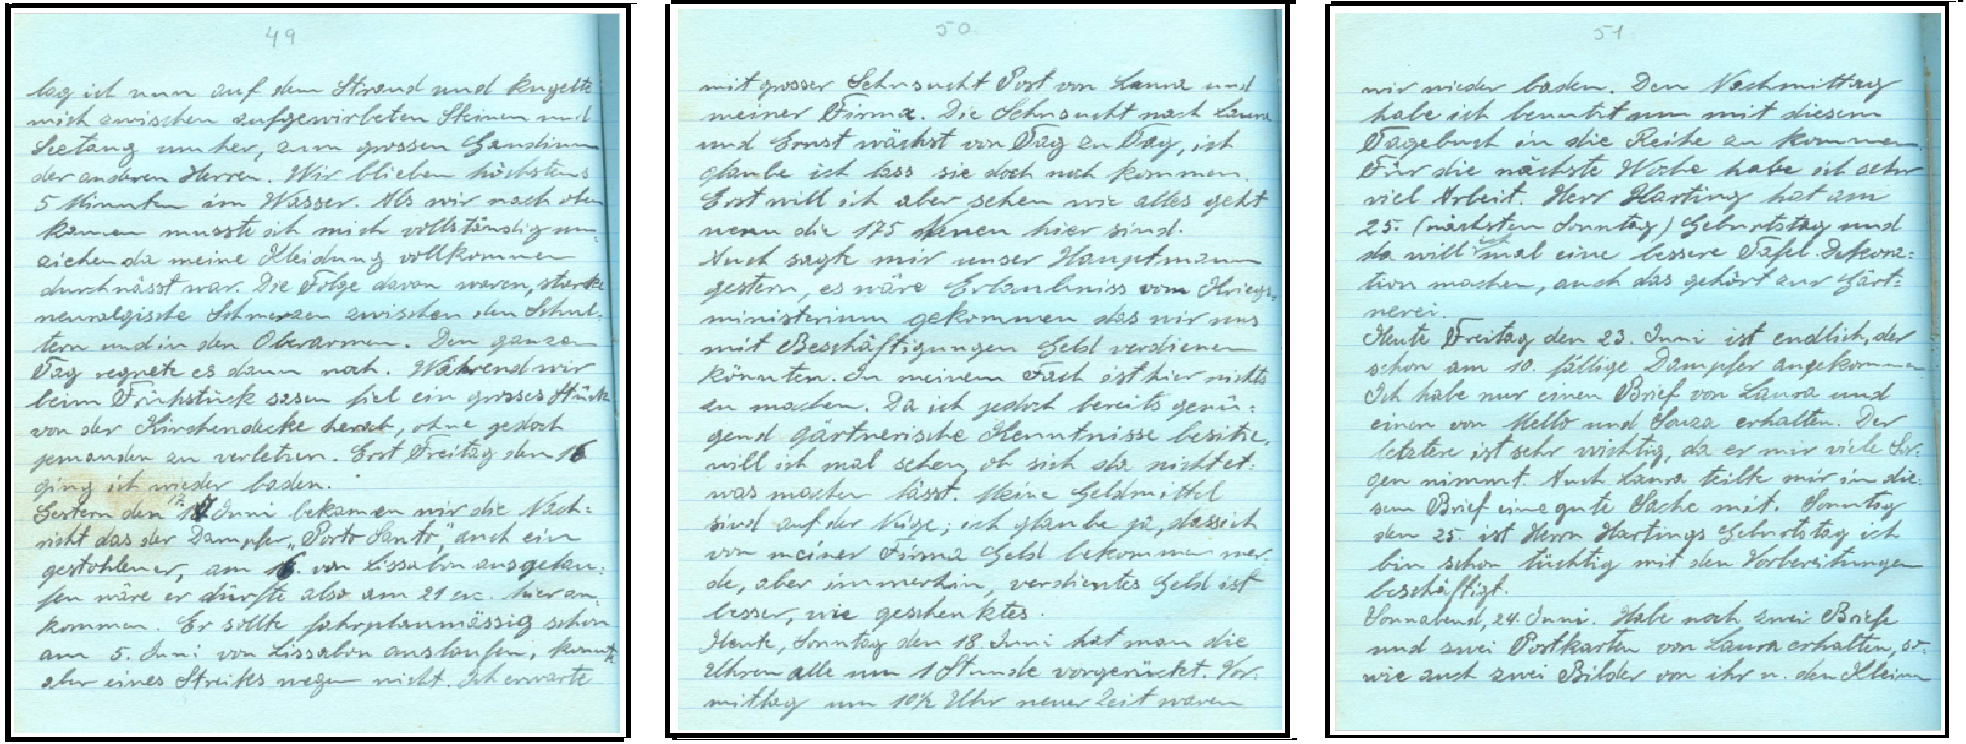 49
lag ich nun auf dem Strand und kugelte
mich zwischen aufgewirbelten Steinen und
Seetang umher, zum grossen Gaudium
der anderen Herren. Wir blieben höchstens
5 Minuten im Wasser. Als wir nach oben
kamen musste ich mich vollständig um-
ziehen da meine Kleidung vollkommen
durchnässt war. Die Folge davon waren, starke
neuralgische Schmerzen zwischen den Schul-
tern und in den Oberarmen. Den ganzen
Tag regnete es dann noch. Während wir
beim Frühstück sasen fiel ein grosses Stück
von der Kirchendecke herab, ohne jedoch
jemanden zu verletzen. Erst Freitag den 16
ging ich wieder baden.
Gestern den 17 Juni bekamen wir die Nach-
richt das der Dampfer „Porto Santo", auch ein
gestohlener, am 16. von Lissabon ausgelau-
fen wäre er dürfte also am 21 hier an-
kommen. Er sollte fahrplanmässig schon
am 5. Juni von Lissabon auslaufen, konnte
aber eines Streikes wegen nicht. Ich erwarte
50
mit grosser Sehnsucht Post von Laura und
meiner Firma. Die Sehnsucht nach Laura
und Ernst wächst von Tag zu Tag, ich
glaube ich lass sie doch noch kommen.
Erst will ich aber sehen wie alles geht
wenn die 175 Neuen hier sind.
Auch sagte mir unser Hauptmann
gestern, es wäre Erlaubniss vom Kriegs-
ministerium gekommen das wir uns
mit Beschäftigungen Geld verdienen
könnten. In meinem Fach ist hier nichts
zu machen. Da ich jedoch bereits genü-
gend gärtnerische Kenntnisse besitze,
will ich mal sehen, ob sich da nicht et-
was machen lässt. Meine Geldmittel
sind auf der Neige; ich glaube ja, dass ich
von meiner Firma Geld bekommen wer-
de, aber immerhin, verdientes Geld ist
besser, wie geschenktes.
Heute, Sonntag den 18. Juni hat man die
Uhren alle um 1 Stunde vorgerücket. Vor-
mittag um 10½ Uhr neuer Zeit waren
51
wir wieder baden. Den Nachmittag
habe ich benutzt um mit diesem
Tagebuch in die Reihe zu kommen.
Für die nächste Woche habe ich sehr
viel Arbeit. Herr Harting hat am
25. (nächsten Sonntag) Geburtstag und
da will ich mal eine bessere Tafel-Dekora-
tion machen, auch das gehört zur Gärt-
nerei.
Heute Freitag den 23. Juni ist endlich, der
schon am 10. fällige Dampfer angekommen
Ich habe nur einen Brief von Laura und
einen von Mello und Souza erhalten. Der
letztere ist sehr wichtig, da er mir viele Sor-
gen nimmt. Auch Laura teilte mir in die-
sem Brief eine gute Sache mit. Sonntag
den 25. ist Herrn Hartings Geburtstag ich
bin schon tüchtig mit den Vorbereitungen
beschäftigt.
Sonnabend, 24. Juni. Habe noch zwei Briefe
und zwei Postkarten von Laura erhalten, so-
wie auch zwei Bilder von ihr u. den Kleinen